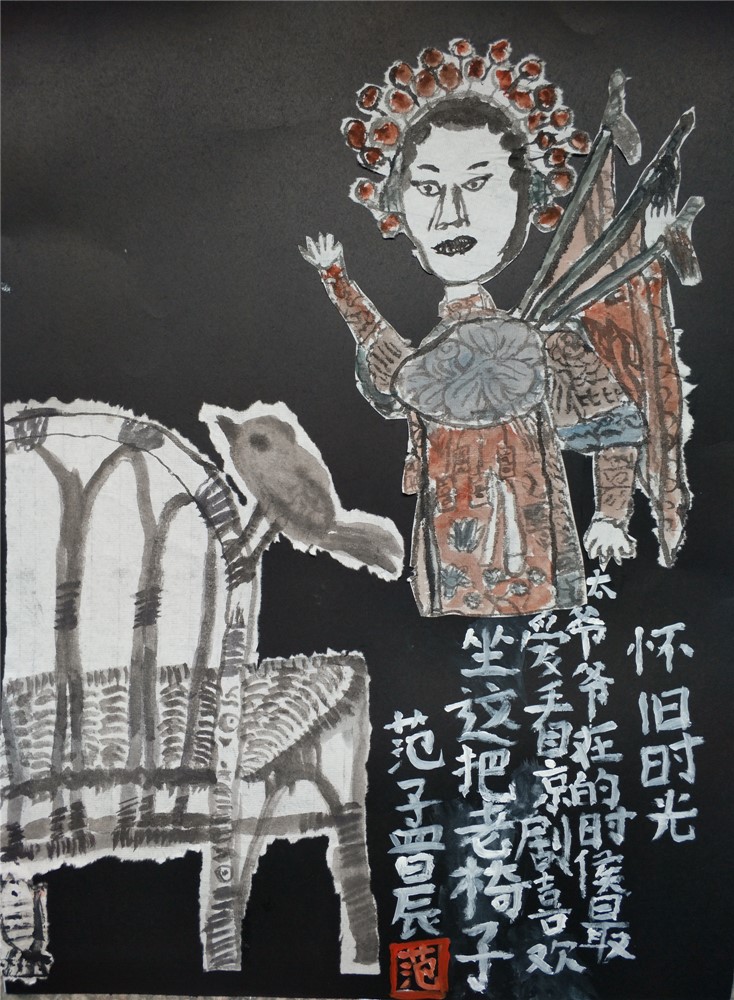 怀旧时光
太爷爷在的时候最
爱看京剧喜欢
坐这把老椅子
范子辰
范